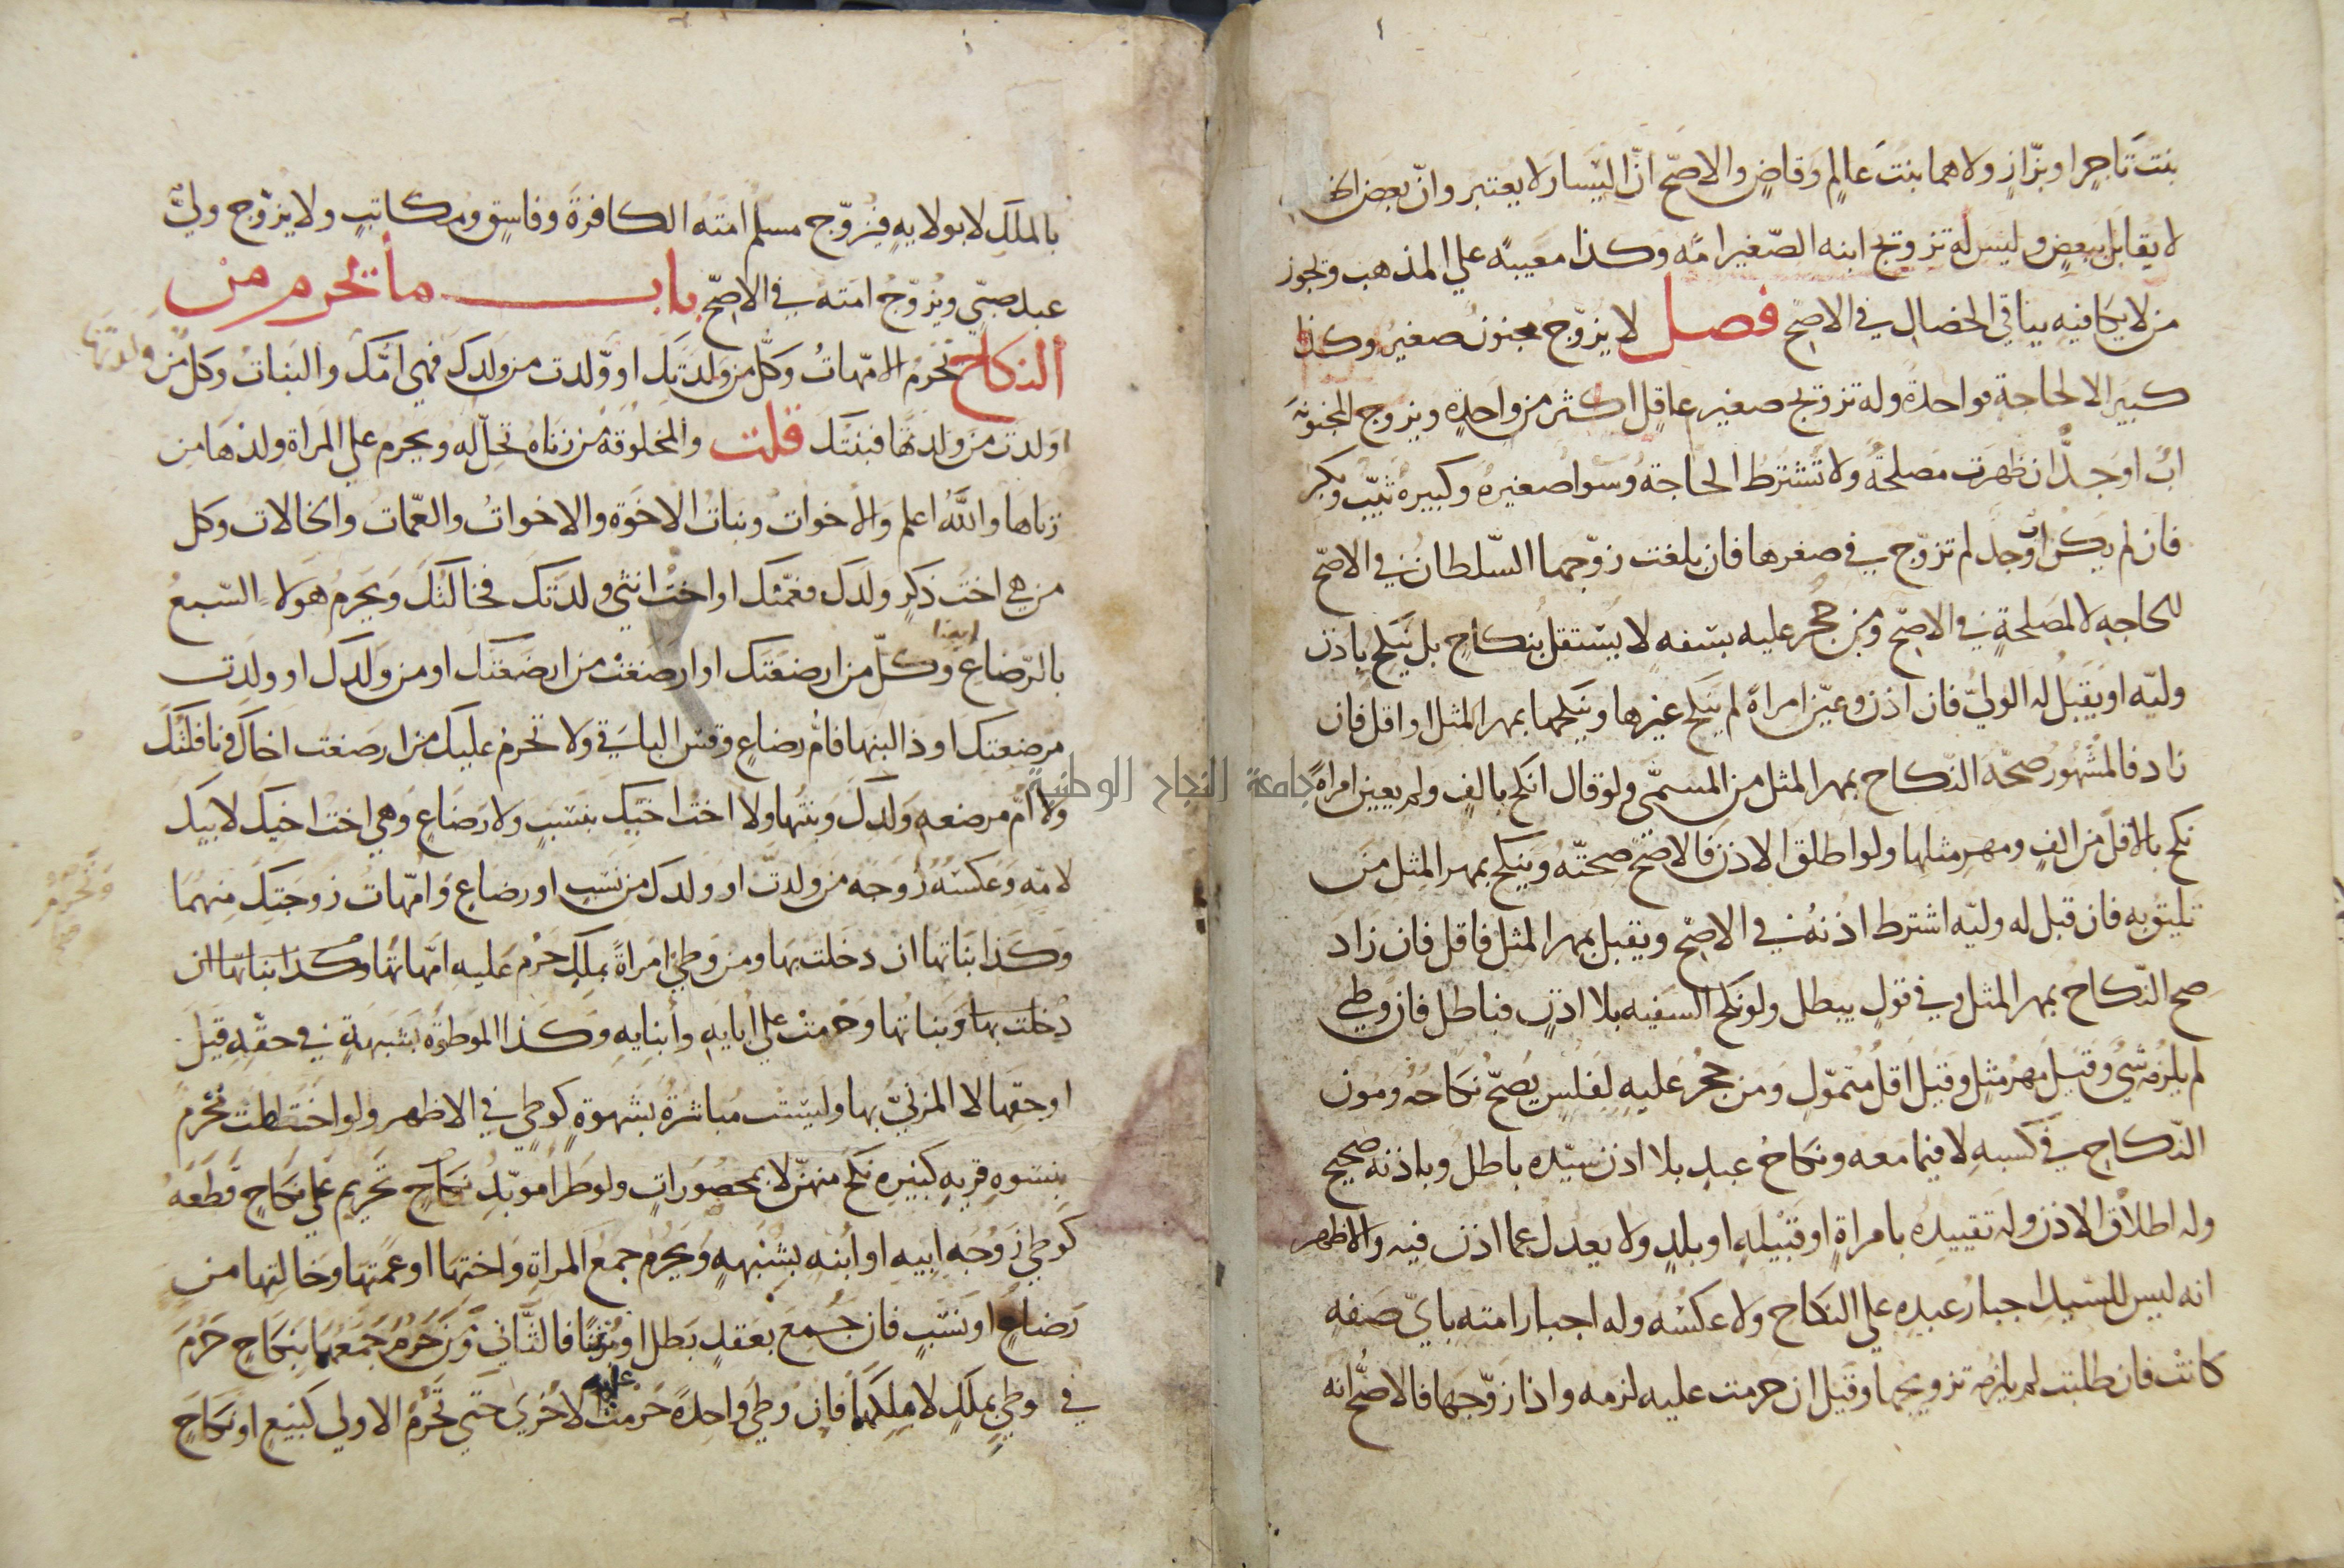 بنت تاجر او بزّاز ولا هما بنت عالم وقاض والاصحّ انّ اليسار لا يعتبر وانّ بعض الخ
لا يقابل ببعض وليس له تزويج ابنه الصّغير امة وكذا معيبة علي المذهب ويجوز
من لا يكافيه بباقي الخصال في الاصح فصل لا يزوّج مجنون صغير وكذا
كبير الا لحاجة فواحدة وله تزويج صغير عاقل اكثر من واحدة ويزوج المجنونة
اب او جدّ ان ظهرت مصلحة ولا تشترط الحاجة وسوا صغيرة وكبيرة ثيّب وبكر
فان لم يكن اب وجد لم تزوّج في صغرها فان بلغت زوّجها السّلطان في الاصحّ
للحاجة لا لمصلحة في الاصحّ ومن حجر عليه بسفه لا يستقل بنكاح بل ينكح باذن
وليّه او يقبل له الوليّ فان اذن وعيّن امراة لم ينكح غيرها وينكحها بمهر المثل او اقل فان
زاد فالمشهور صحّة النّكاح بمهر المثل من المسمّي ولو قال انكح بالف ولم يعين امراة
نكح بالاقل من الف ومهر مثلها ولو اطلق الاذن فالاصحّ صحّته وينكح بمهر المثل من
تليق به فان قبل له وليّه اشترط اذنه في الاصحّ ويقبل بمهر المثل فاقل فان زاد
صح النّكاح بمهر المثل وفي قول يبطل ولو نكح السفيه بلا اذن فباطل فان وطي
لم يلزمه شي وقيل مهر مثل وقيل اقل متموّل ومن حجر عليه لفلس يصحّ نكاحه ومون
النّكاح في كسبه لا فيما معه ونكاح عبد بلا اذن سيّده باطل وباذنه صحيح
وله اطلاق الاذن وله تقييده بامراة او قبيلة او بلد ولا يعدل عما اذن فيه والاظهر
انه ليس للسّيد اجبار عبده علي النكاح ولا عكسه وله اجبار امته بايّ صفة
كانت فان طلبت لم يلزمه تزويجها وقيل ان حرمت عليه لزمه واذا زوّجها فالاصحّ انه
بالملك لا بولاية فيزوّج مسلم امته الكافرة وفاسق ومكاتب ولا يزوّج وليّ
عبد صبّي ويزوّج امته في الاصحّ باب ما يحرم من
النكاح تحرم الامّهات وكلّ من ولدتك او ولّدت من ولدك فهي امّك والبنات وكل من ولدتها
او لدت من ولدها فبنتك قلت والمخلوقة من زناه تحلّ له ويحرم علي المراة ولدها من
زناها والله اعلم والاخوات وبنات الاخوة والاخوات والعّمات والخالات وكل
من هي اخت ذكر ولدك فعمّتك او اخت انثي ولدتك فخالتك ويحرم هولاء السّبع
بالرّضاع ايضا وكلّ من ارضعتك او ارضعت من ارضعتك او من ولدك او ولدت
مرضعتك او ذا لبنها فامّ رضاع وقس الباقي ولا تحرم عليك من ارضعت اخاك ونافلتك
ولا امّ مرضعة ولدك وبنتها ولا اخت اخيك بنسب ولا رضاع وهي اخت اخيك لابيك
لامّه وعكسه زوجة من ولدت او ولدك من نسب او رضاع وامّهات زوجتك منهما
وتحرم
وكذا بناتها ان دخلت بها ومن وطي امراة بملك حرم عليه امّهاتها وكذا بناتها ان
دخلت بها وبناتها وحرمت علي ابايه وابنايه وكذا الموطوة بشبهة في حقّه قيل
او حقها لا المزنيّ بها وليست مباشرة بشهوة كوطي في الاظهر ولو اختلطت محرم
بنسوة قرية كبيرة نكح منهنّ لا بمحصورات ولو طرا موبّد تحريم علي نكاح قطعه
كوطي زوجة ابيه او ابنه بشبهة ويحرم جمع المراة واختها او عمتها وخالتها من
رضاع او نسب فان جمع بعقد بطل او مرتبا فالثّاني ومن حرم جمعهما بنكاح حرم
في وطي بملك لا ملكهما فان وطي واحدة حرمت عليه الاخري حتي تحرم الاولي كبيع او نكاح